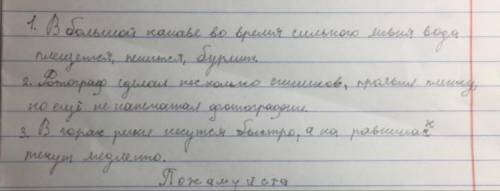 1. В большой канаве во время сильного ливня вода
плещется, пенится, бурлит.
2. Фотограф сделал несколько снимков, проявил плёнку,
но ещё не напечатал фотографии.
3. В горах реки несутся быстро, а на равнинах
текут медленно.
Пожамуйста